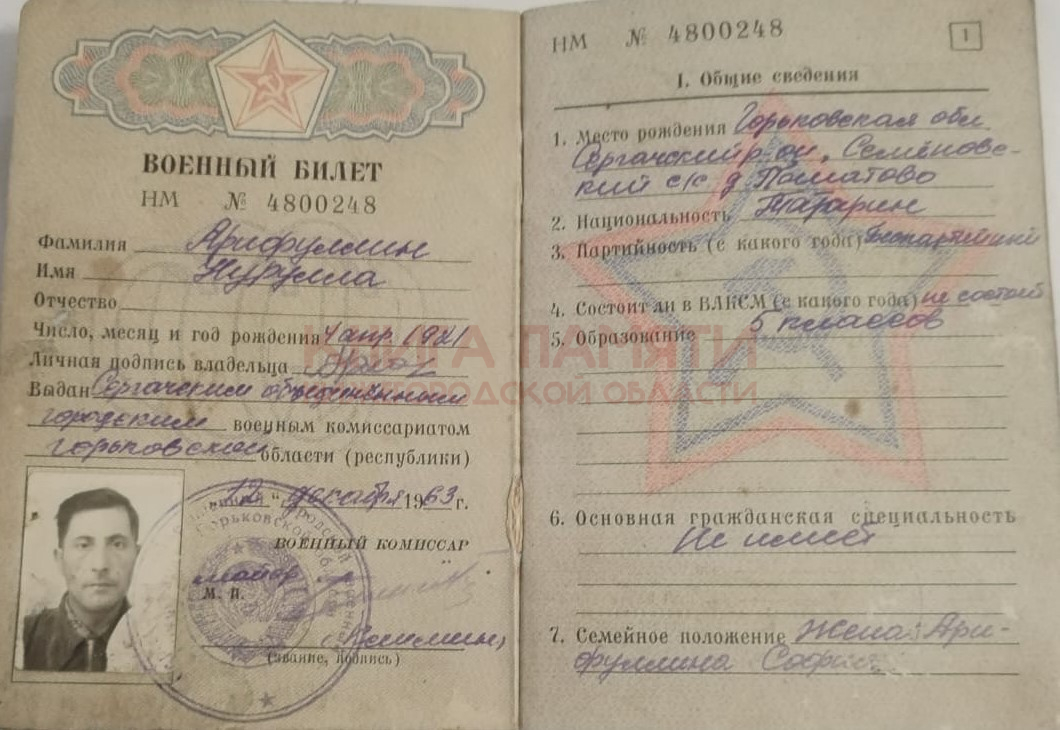 ВОЕННЫЙ БИЛЕТ
НМ № 4800248
Фамилия Арифуллин
Имя Нурулла
Отчество
Число, месяц и год рождения 4 апр. 1921
Личная подпись владельца
Выдан Сергачским объединённым
городским военным комиссариатом
Горьковской области (республики)
12 " декабря 1963 г.
ВОЕННЫЙ КОМИССАР
майор
М. П.
(звание, подпись)
НМ № 4800248
1
I. Общие сведения
1. Место рождения Горьковская обл.
Сергачский р-он, Семёновс-
кий с/с д. Пошатово
2. Национальность Татарин
3. Партийность (с какого года) Беспартийный
4. Состоит ли в ВЛКСМ (с какого года) не состоит
5. Образование 5 классов
6. Основная гражданская специальность
Не имеет
7. Семейное положение Жена: Ари-
фуллина
КНИГА ПАМЯТИ
НИЖЕГОРОДСКОЙ ОБЛАСТИ